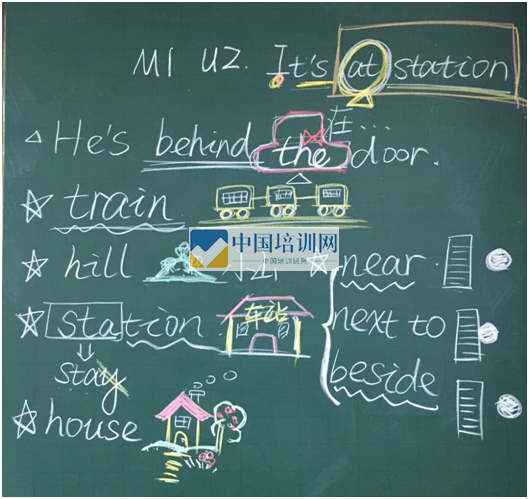 M1 U2. It's at station
He's behind the door.
在...
train
中国培训网
hill 小山
near
station 车站
next to
stay
beside
house